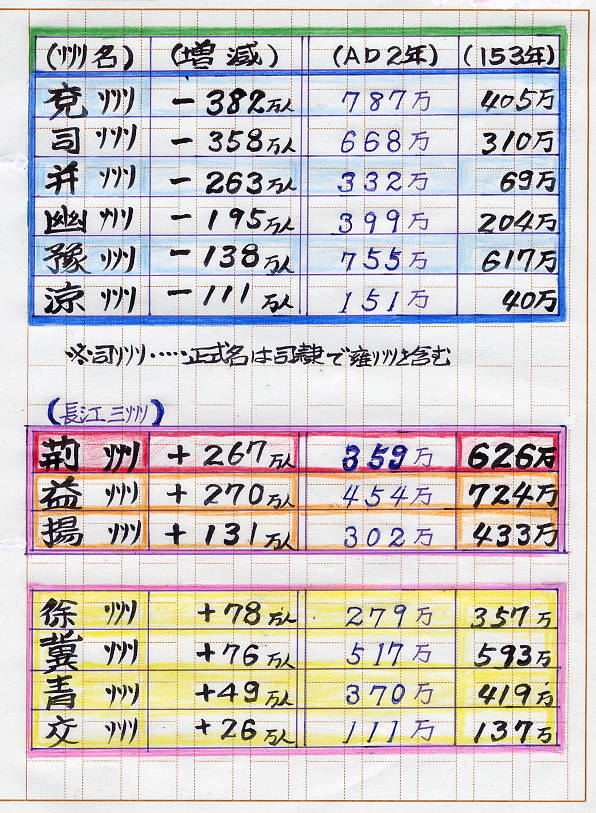 (州名) (増減) (AD2年) (153年)
兗州 －382万人 787万 405万
司州 －358万人 668万 310万
并州 －263万人 332万 69万
幽州 －195万人 399万 204万
豫州 －138万人 755万 617万
涼州 －111万人 151万 40万
※司州‥‥‥正式名は司隷で雍州を含む
(長江三州)
荊州 +267万人 359万 626万
益州 +270万人 454万 724万
揚州 +131万人 302万 433万
徐州 +78万人 279万 357万
冀州 +76万人 517万 593万
青州 +49万人 370万 419万
交州 +26万人 111万 137万